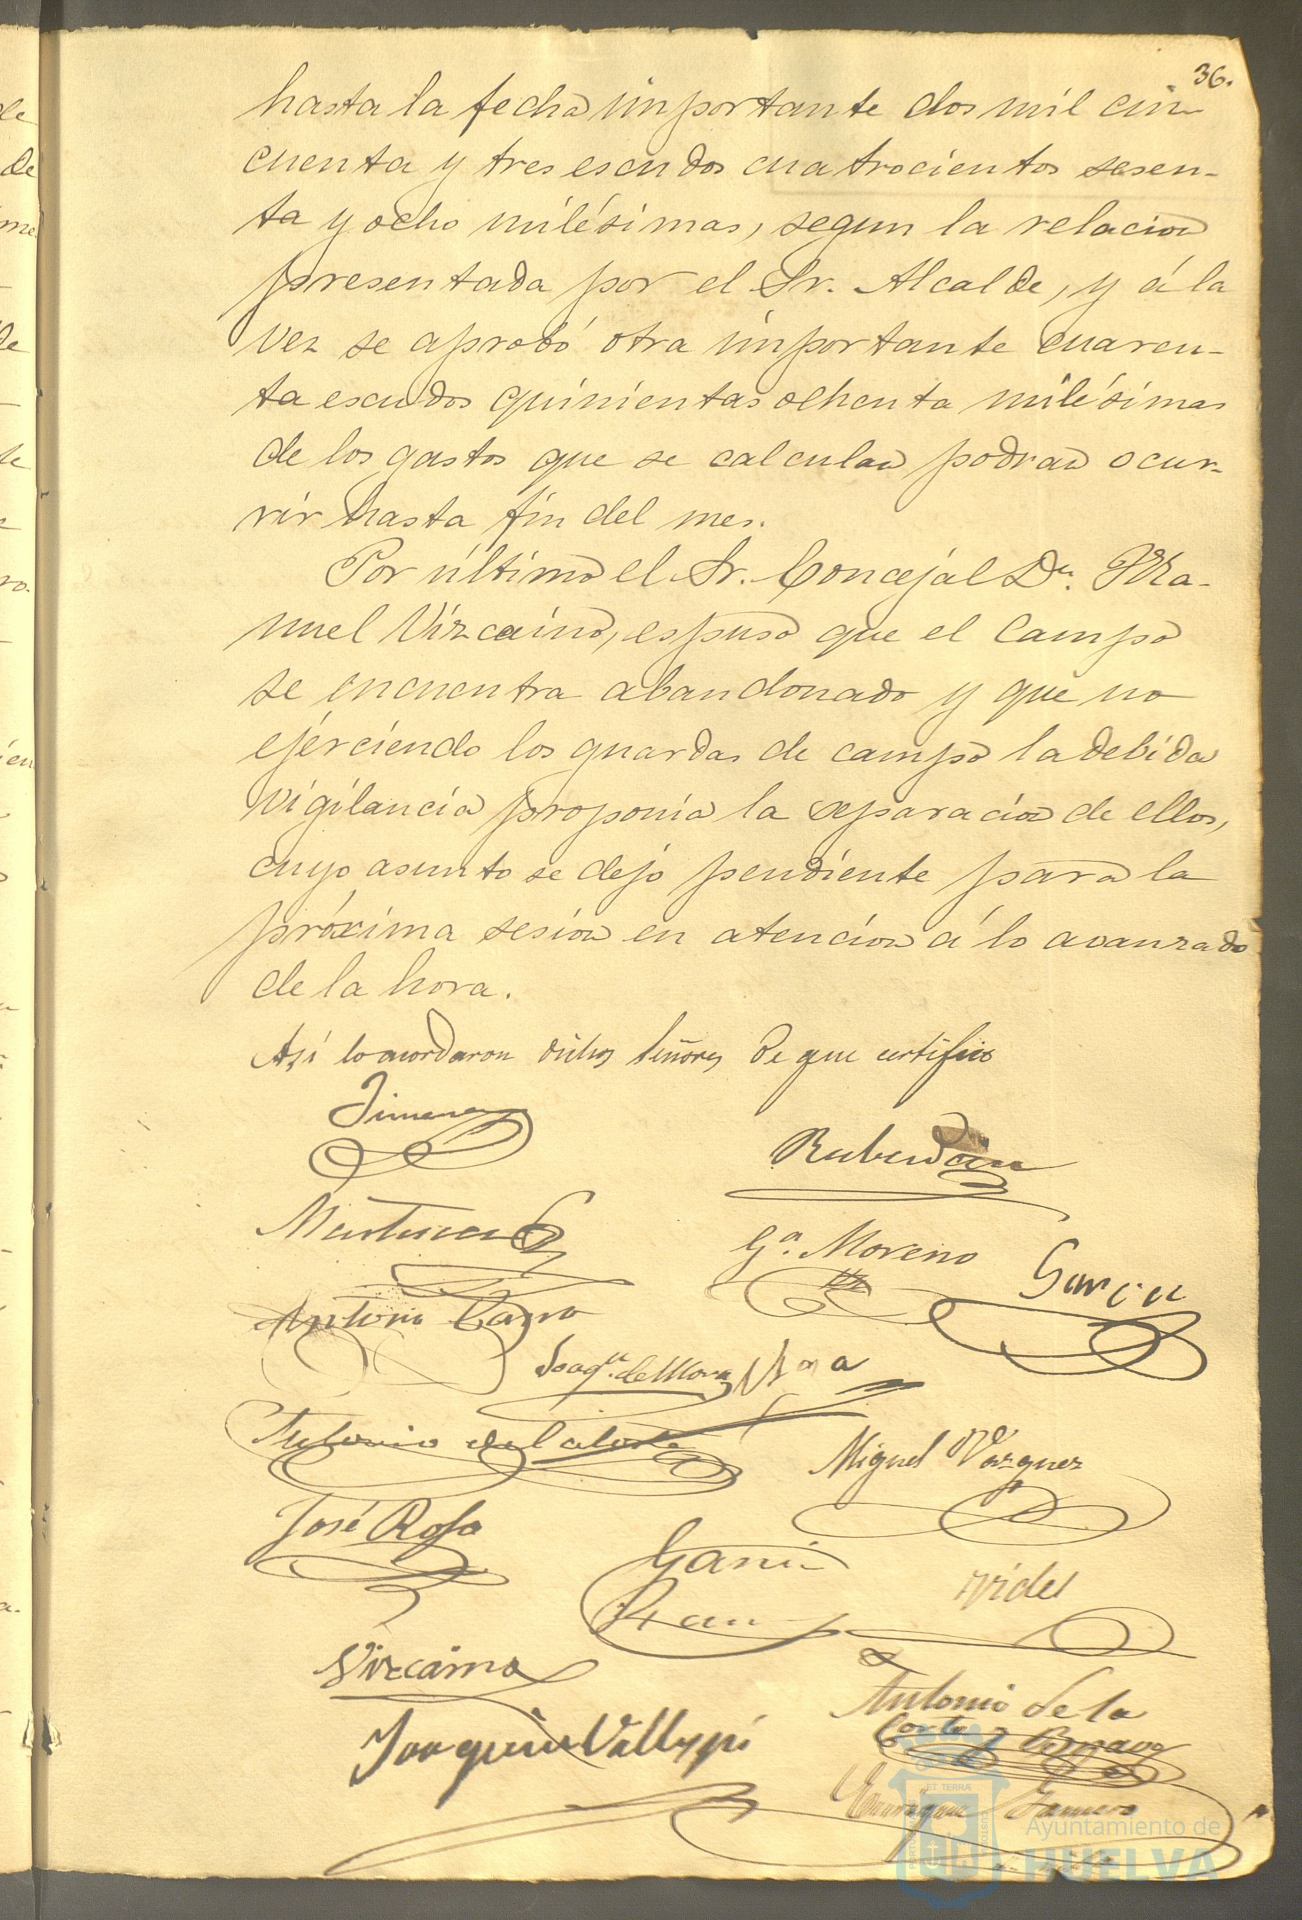 36.
hasta la fecha importante dos mil cin-
cuenta y tres escudos cuatrocientos sesen-
ta y ocho milésimas, segun la relacion
presentada por el Sr. Alcalde, y á la
vez se aprobó otra importante cuaren-
ta escudos quinientas ochenta milésimas
de los gastos que se calculan podran ocur-
rir hasta fin del mes.
Por último el Sr. Concejal Dn. Ma-
nuel Vizcaino, espuso que el campo
se encuentra abandonado y que no
ejerciendo los guardas de campo la debida
vigilancia proponia la separacion de ellos,
cuyo asunto se dejó pendiente para la
próxima sesion en atencion á lo avanzado
de la hora.
Así lo acordaron dichos Señores de que certifico
Jimenez
Ruberdain
Martinez
Ga. Moreno
Garcia
Antonio Carro
Joaqn. de Mora
Antonio
Miguel Vazquez
José Rosa
Garcia
Vides
Vizcaino
Antonio de la
Corte y Bravo
Joaquin
ET TERRÆ
Ayuntamiento de
HUELVA